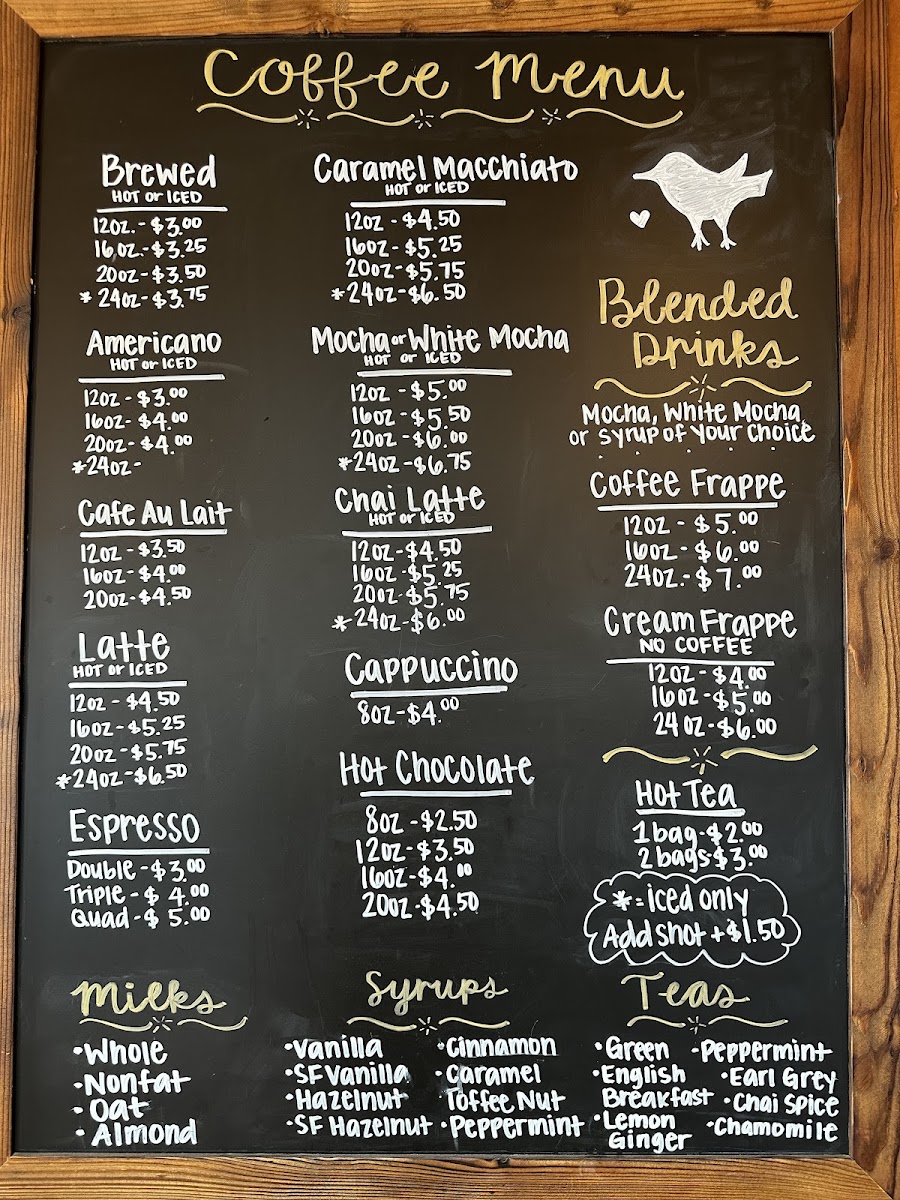 Coffee Menu
Brewed
HOT or ICED
12oz.-$3.00
16oz.-$3.25
20oz-$3.50
*24oz-$3.75
Americano
HOT or ICED
12oz-$3.00
16oz-$4.00
20oz-$4.00
*24oz-
Cafe Au Lait
12oz-$3.50
16oz-$4.00
20oz-$4.50
Latte
HOT or ICED
12oz-$4.50
16oz-$5.25
20oz-$5.75
*24oz-$6.50
Espresso
Double-$3.00
Triple-$4.00
Quad-$5.00
Caramel Macchiato
HOT or ICED
12oz-$4.50
16oz-$5.25
20oz-$5.75
*24oz-$6.50
Mocha or White Mocha
HOT or ICED
12oz-$5.00
16oz-$5.50
20oz-$6.00
*24oz-$6.75
Chai Latte
HOT or ICED
12oz-$4.50
16oz-$5.25
20oz-$5.75
*24oz-$6.00
Cappuccino
8oz-$4.00
Hot Chocolate
8oz-$2.50
12oz-$3.50
16oz-$4.00
20oz-$4.50
Blended
Drinks
Mocha, White Mocha
or syrup of your choice
Coffee Frappe
12oz-$5.00
16oz-$6.00
24oz.-$7.00
Cream Frappe
NO COFFEE
12oz-$4.00
16oz-$5.00
24oz-$6.00
Hot Tea
1bag-$2.00
2bags-$3.00
*=iced only
Add shot +$1.50
Milks
•Whole
•Nonfat
•Oat
•Almond
Syrups
•Vanilla
•SF Vanilla
•Hazelnut
•SF Hazelnut
•Cinnamon
•Caramel
Toffee Nut
•Peppermint
Teas
•Green
•English
Breakfast
•Lemon
Ginger
•Peppermint
•Earl Grey
•Chai Spice
•Chamomile